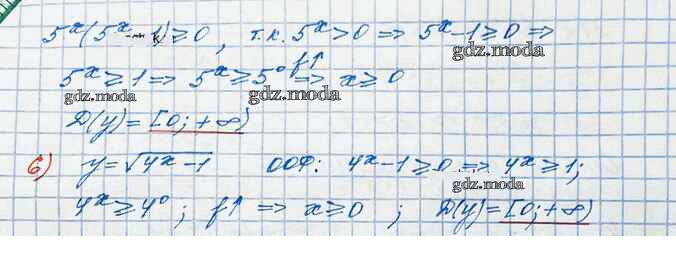 5ˣ(5ˣ - 1) ≥ 0, т.к. 5ˣ > 0 => 5ˣ - 1 ≥ 0 =>
gdz.moda
5ˣ ≥ 1 => 5ˣ ≥ 5⁰ f↑ => x ≥ 0
gdz.moda gdz.moda
D(y) = [0; +∞)
б) y = √(4ˣ - 1) ООФ: 4ˣ - 1 ≥ 0 => 4ˣ ≥ 1;
gdz.moda
4ˣ ≥ 4⁰; f↑ => x ≥ 0; D(y) = [0; +∞)